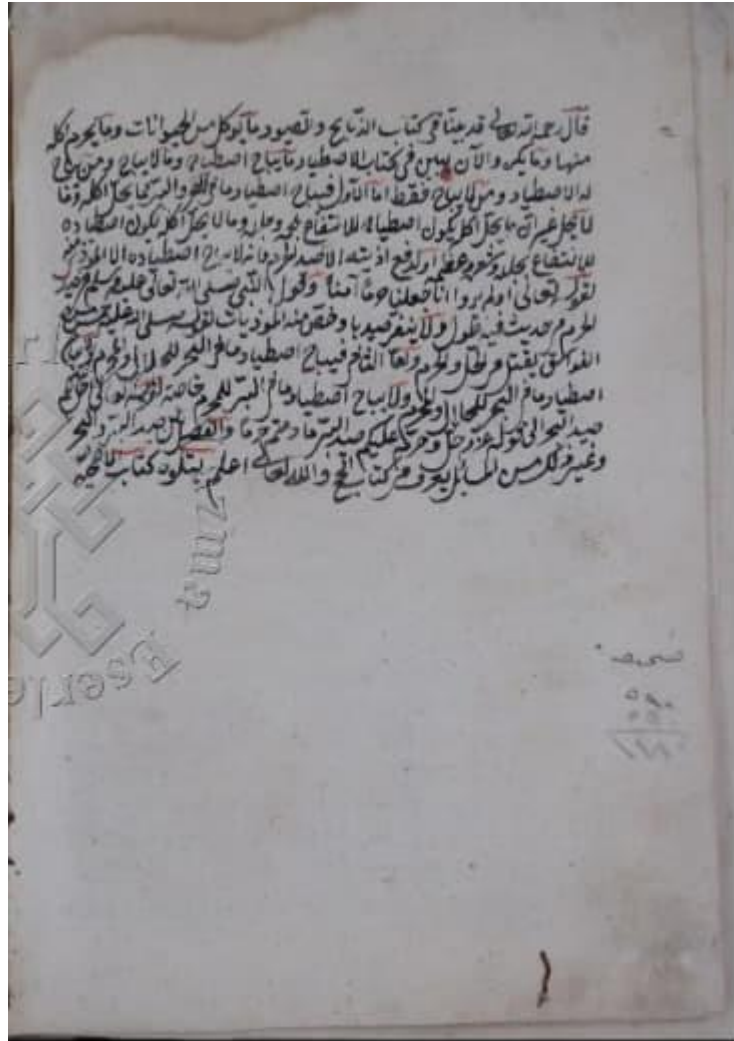 قال رحمه الله تعالى قد بينا في كتاب الذبايح والصيود ما يؤكل من الحيوانات وما يحرم اكله
منها وما يكره والآن نبين في كتاب الاصطياد ما يباح اصطياده وما لا يباح ومن يباح
له الاصطياد ومن لا يباح فقط اما الاول فيباح اصطياد ما في البحر والبر مما يحل اكله وما
لا يحل غير ان ما يحل اكله يكون اصطياده للانتفاع بلحمه وما لا يحل اكله يكون اصطياده
للانتفاع بجلده وشعره وعظمه او لدفع اذيته الا صيد الحرم فانه لا يباح اصطياده الا الموذي منه
لقوله تعالى اولم يروا انا جعلنا حرما آمنا وقول النبي صلى الله تعالى عليه وسلم في صيد
الحرم في حديث فيه طول ولا ينفر صيدها وخص منه الموذيات لقوله صلى الله عليه وسلم خمس من
الفواسق يقتلن في الحل والحرم واما الثاني فيباح اصطياد ما في البحر للحلال والمحرم
اصطياد ما في البحر للحلال والمحرم ولا يباح اصطياد ما في البر للمحرم خاصة لقوله تعالى احل لكم
صيد البحر الى قوله عز وجل وحرم عليكم صيد البر ما دمتم حرما والفصل بين صيد البر والبحر
وغير ذلك من المسائل يعرف في كتاب الحج والله تعالى اعلم يتلوه كتاب الاضحية
صحيفه
Eserle